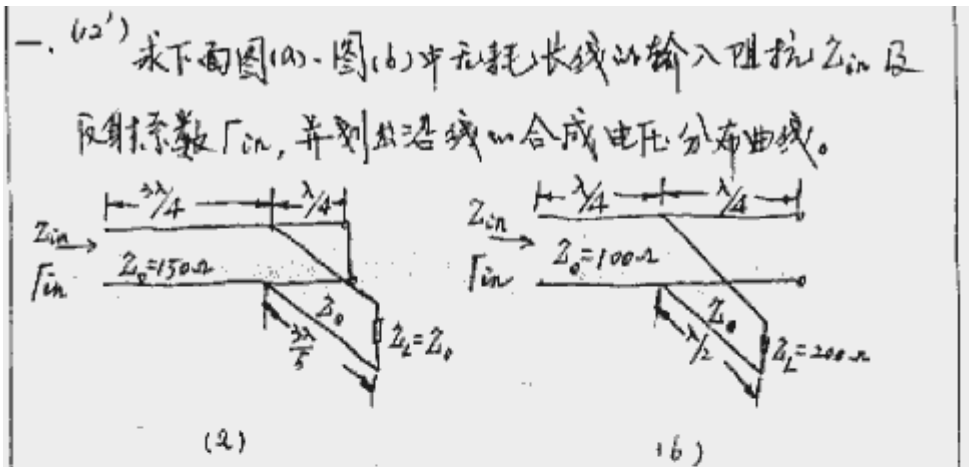 一、(12')求下面图(a)、图(b)中无耗长线的输入阻抗Zin及
反射系数Γin, 并划出沿线的合成电压分布曲线。
3λ/4 λ/4
Zin
Γin
Z₀=150Ω
Z₀
3λ/5
Z_L=Z₀
(a)
λ/4 λ/4
Zin
Γin
Z₀=100Ω
Z₀
λ/2
Z_L=200Ω
(b)